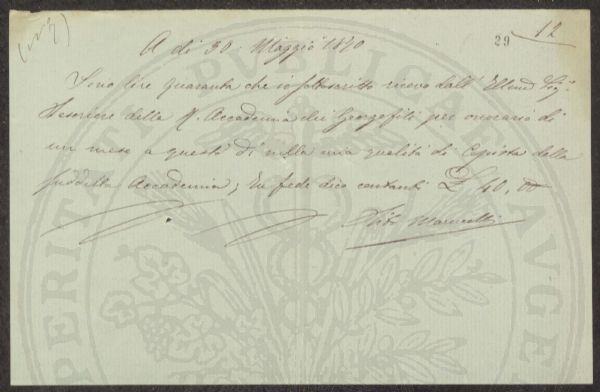 29 12
A dì 30. Maggio 1870
Sono lire quaranta che io sottoscritto ricevo dall' Illmo Sigr
Tesoriere della R. Accademia dei Georgofili per onorario di
un mese a questo dì nella mia qualità di Copista della
suddetta Accademia; In fede dico contanti £ 40, 00
Marucelli
PERITAS PUBLICAE AUGE